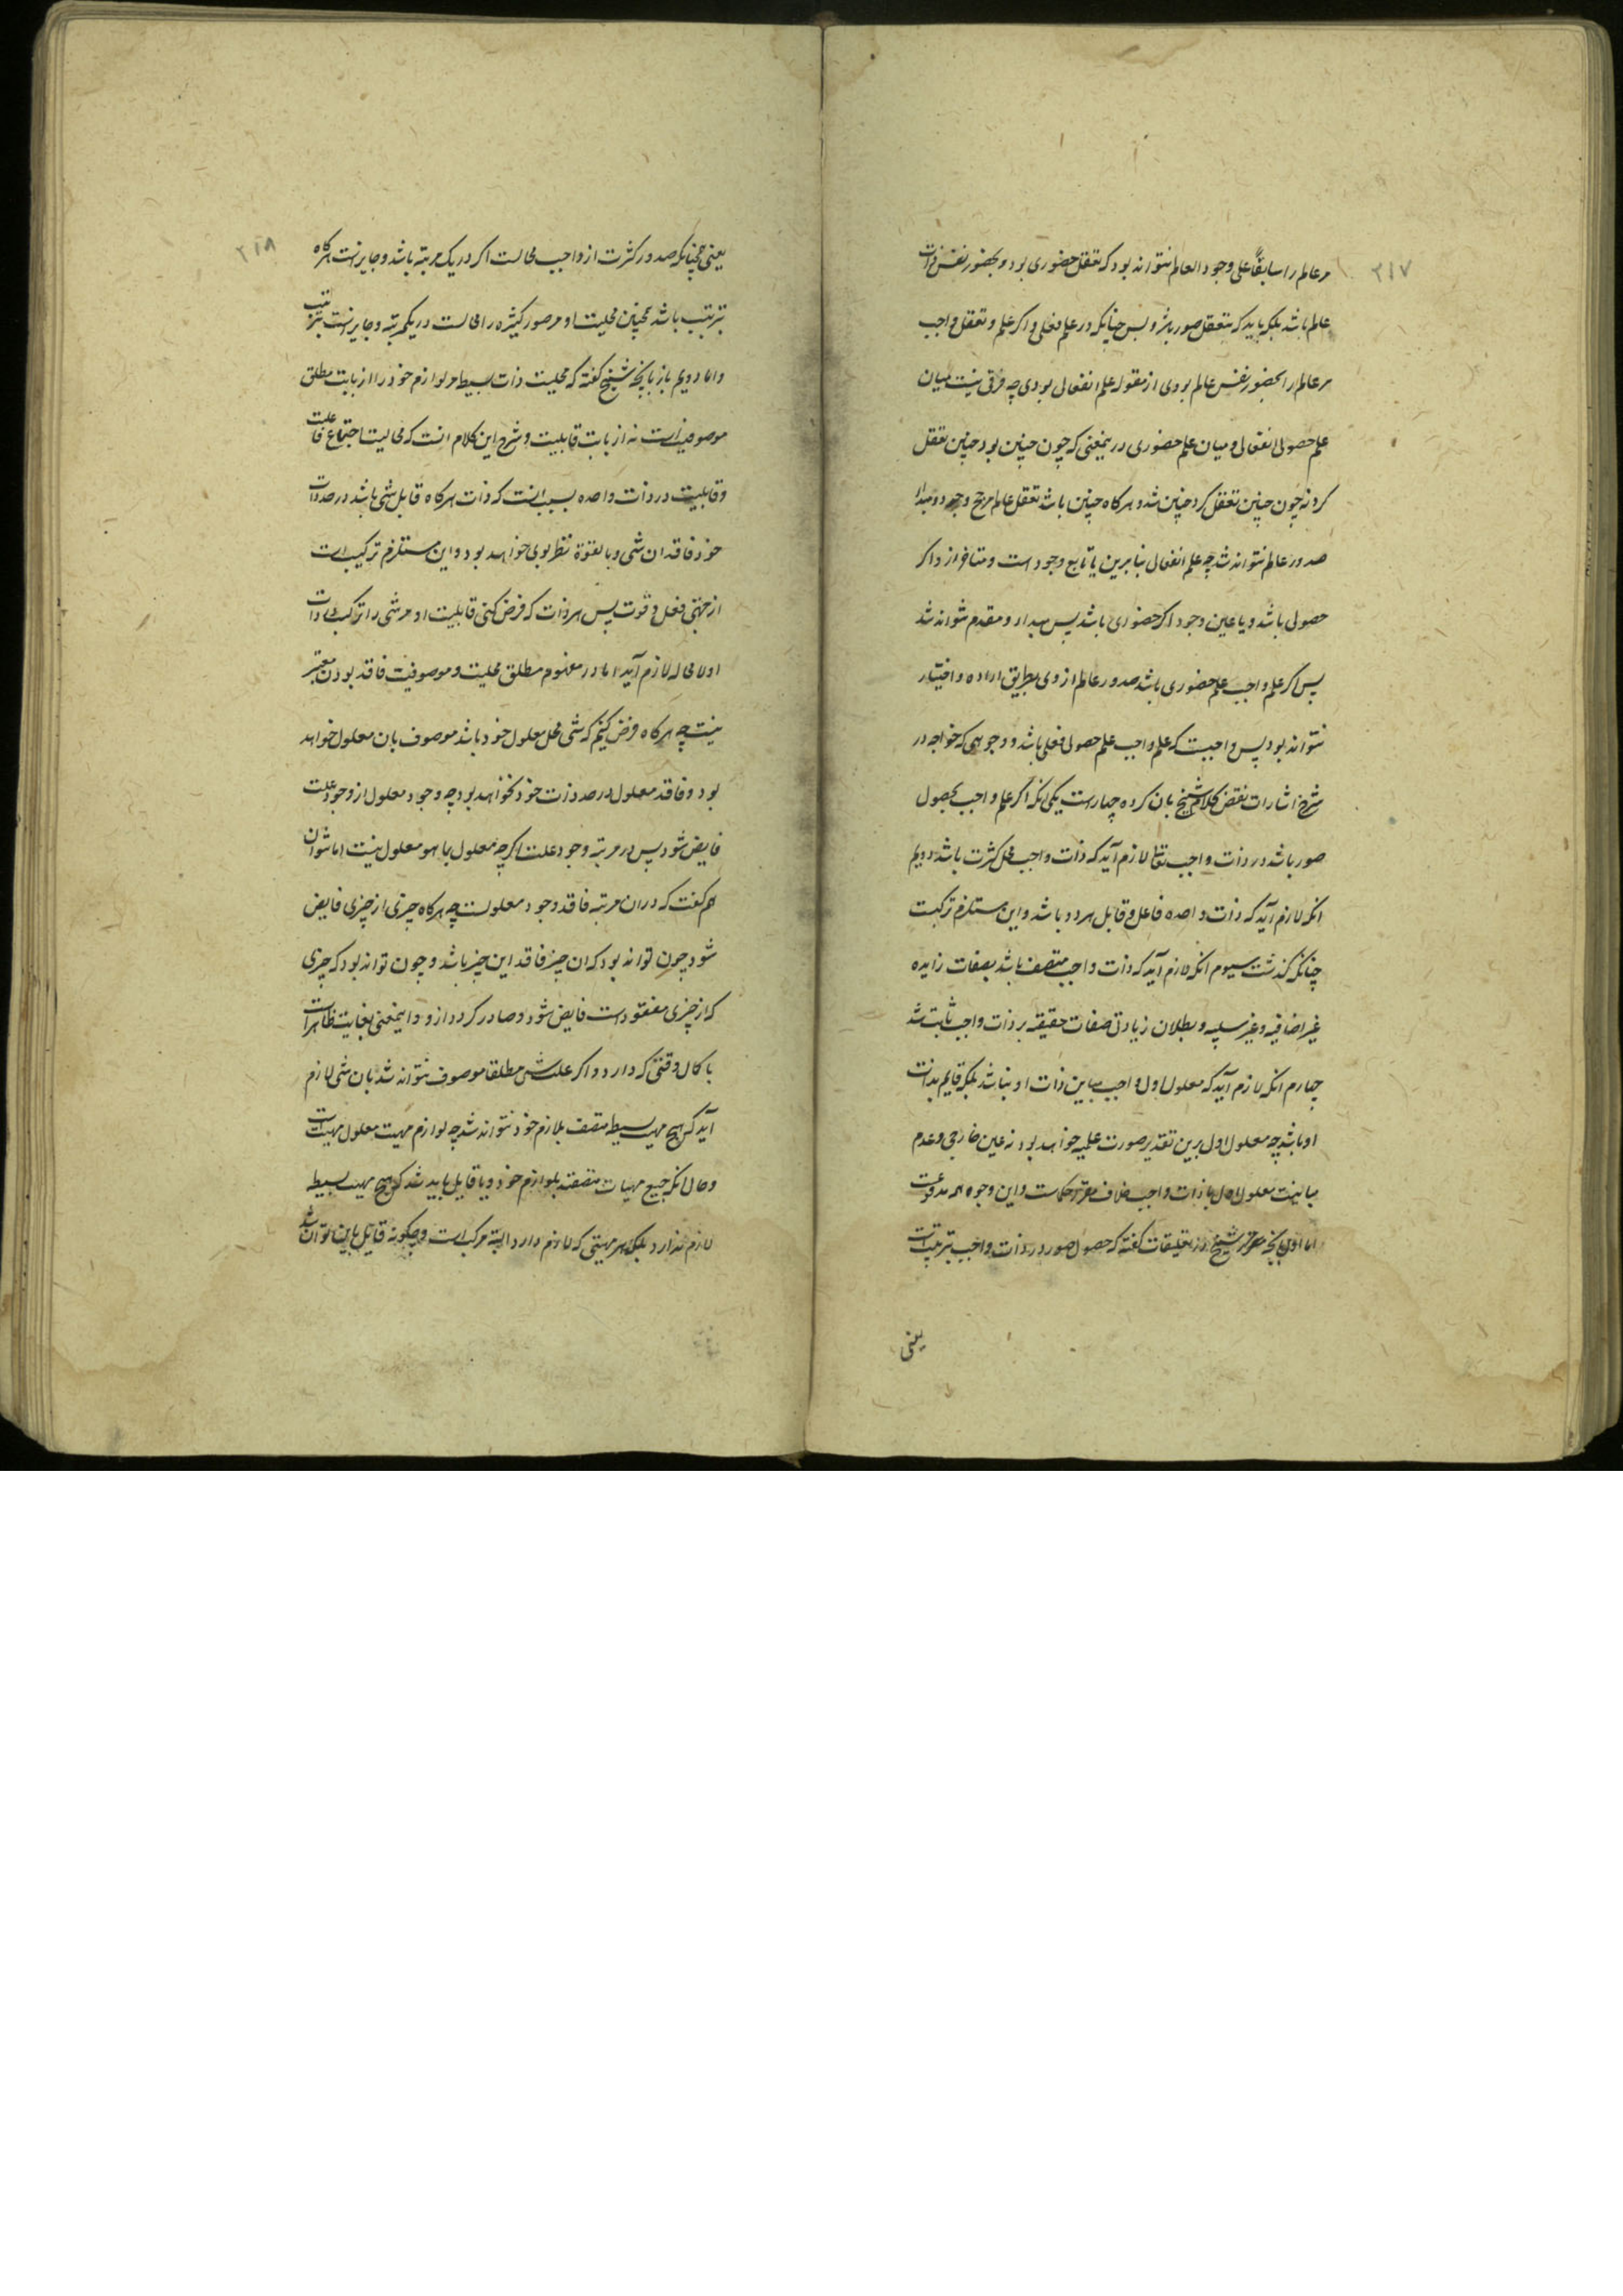 ۲۱۷
مر عالم را سابقاً علی وجود العالم نتواند بود که تعقل حضوری بود و بحضور نفس ذات
عالم باشد بلکه باید که متعقل صور باشد و بس چنانکه در علم فعلی و اگر علم و تعقل واجب
مر عالم را بحضور نفس عالم بودی از مقوله علم انفعالی بودی چه فرقی نیست میان
علم حصولی انفعالی و میان علم حضوری درینمعنی که چون چنین بود چنین تعقل
کرد نه چون چنین تعقل کرد چنین شد و هرکاه چنین باشد تعقل عالم مرجح وجود و مبدا
صدور عالم نتواند شد چه علم انفعالی بنابرین یا تابع وجود است و متاخر از و اکر
حصولی باشد و یا عین وجود اکر حضوری باشد پس مبداء و مقدم نتواند شد
پس اکر علم واجب علم حضوری باشد صدور عالم از وی بطریق اراده و اختیار
نتواند بود پس واجبست که علم واجب علم حصولی فعلی باشد و وجوهی که خواجه در
شرح اشارات نقض کلام شیخ بان کرده چهارست یکی انکه اکر علم واجب بحصول
صور باشد در ذات واجب تعالی لازم آید که ذات واجب محل کثرت باشد دویم
انکه لازم آید که ذات واحده فاعل و قابل هردو باشد و این مستلزم ترکیبست
چنانکه کذشت سیوم انکه لازم آید که ذات واجب متصف باشد بصفات زایده
غیر اضافیه و غیر سلبیه و بطلان زیادتی صفات حقیقیه بر ذات واجب ثابت شد
چهارم انکه لازم آید که معلول اول واجب مباین ذات او نباشد بلکه قایم بذات
او باشد چه معلول اول برین تقدیر صورت علمیه خواهد بود نه عین خارجی و عدم
مباینت معلول اول با ذات واجب خلاف مقرر حکماست و این وجوه همه مدفوعست
اما اول بانچه شیخ در تعلیقات کفته که حصول صور در ذات واجب بترتیب است
یعنی
۲۱۸
یعنی همچنانکه صدور کثرت از واجب محالست اکر در یک مرتبه باشد و جایز است هرکاه
بترتیب باشد همچنین محلیت او مر صور کثیره را محالست در یکمرتبه و جایز است بترتیب
و اما دویم باز بانچه شیخ کفته که محلیت ذات بسیط مر لوازم خود را از بابت مطلق
موصوفیت است نه از بابت قابلیت و شرح این کلام انست که محالیت اجتماع فاعلیت
و قابلیت در ذات واحده بسبب انست که ذات هرکاه قابل شی باشد در حد ذات
خود فاقد ان شی و بالقوة نظر بوی خواهد بود و این مستلزم ترکیب است
از جهتی فعل و قوت پس هر ذات که فرض کنی قابلیت او مر شی را ترکب در ذات
او لا محاله لازم آید اما در مفهوم مطلق محلیت و موصوفیت فاقد بودن معتبر
نیست چه هرکاه فرض کنیم که شی محل معلول خود باشد موصوف بان معلول خواهد
بود و فاقد معلول در حد ذات خود نخواهد بود چه وجود معلول از وجود علت
فایض شود پس در مرتبه وجود علت اکرچه معلول بما هو معلول نیست اما نتوان
هم کفت که دران مرتبه فاقد وجود معلولست چه هرکاه چیزی از چیزی فایض
شود چون تواند بود که ان چیز فاقد این چیز باشد و چون تواند بود که چیزی
که از چیزی مفقود است فایض شود و صادر کردد ازو و اینمعنی بغایت ظاهر است
با کمال دقتی که دارد و اکر علت شی مطلقا موصوف نتواند شد بان شی لازم
آید که هیچ مهیت بسیط متصف بلازم خود نتواند شد چه لوازم مهیت معلول مهیت است
و حال انکه جمیع مهیات متصفند بلوازم خود و یا قایل باید شد که هیچ مهیت بسیطه
لازم ندارد بلکه هر مهیتی که لازم دارد البته مرکب است و چکونه قایل باین توان شد